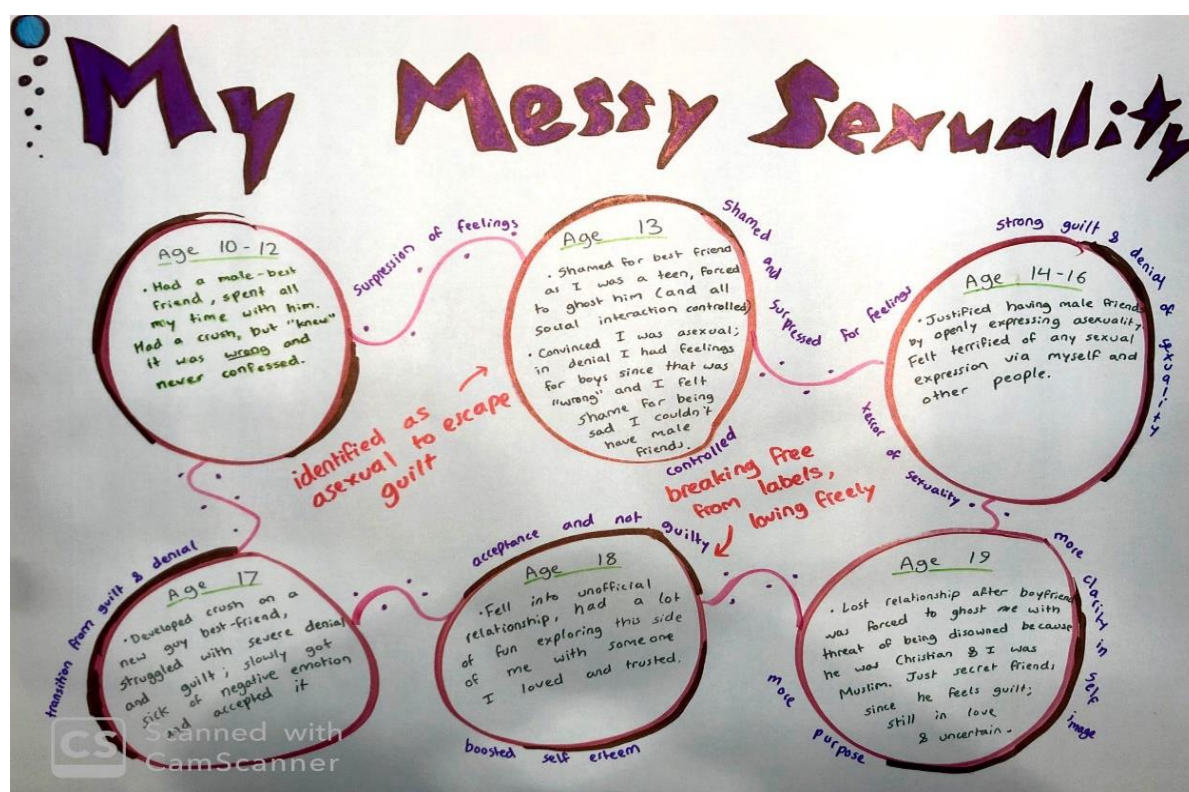 My Messy Sexuality
Age 10-12
• Had a male-best
friend, spent all
my time with him.
Had a crush, but "knew"
it was wrong and
never confessed.
surpression of feelings
Age 13
• Shamed for best friend
as I was a teen, forced
to ghost him (and all
social interaction controlled)
• Convinced I was asexual;
in denial I had feelings
for boys since that was
"wrong" and I felt
shame for being
sad I couldn't
have male
friends.
Shamed and surpressed for feelings
controlled
identified as
asexual to escape
guilt
strong guilt & denial of sexuality
Age 14-16
• Justified having male friends
by openly expressing asexuality.
Felt terrified of any sexual
expression via myself and
other people.
terror of sexuality
breaking free
from labels,
loving freely
transition from guilt & denial
Age 17
• Developed crush on a
new guy best-friend,
struggled with severe denial
and guilt; slowly got
sick of negative emotion
and accepted it
acceptance and not guilty
Age 18
• Fell into unofficial
relationship, had a lot
of fun exploring this side
of me with someone
I loved and trusted.
boosted self esteem
more clarity in self image
Age 19
• Lost relationship after boyfriend
was forced to ghost me with
threat of being disowned because
he was Christian & I was
Muslim. Just secret friends
since he feels guilt;
still in love
& uncertain.
more purpose
CS Scanned with
CamScanner